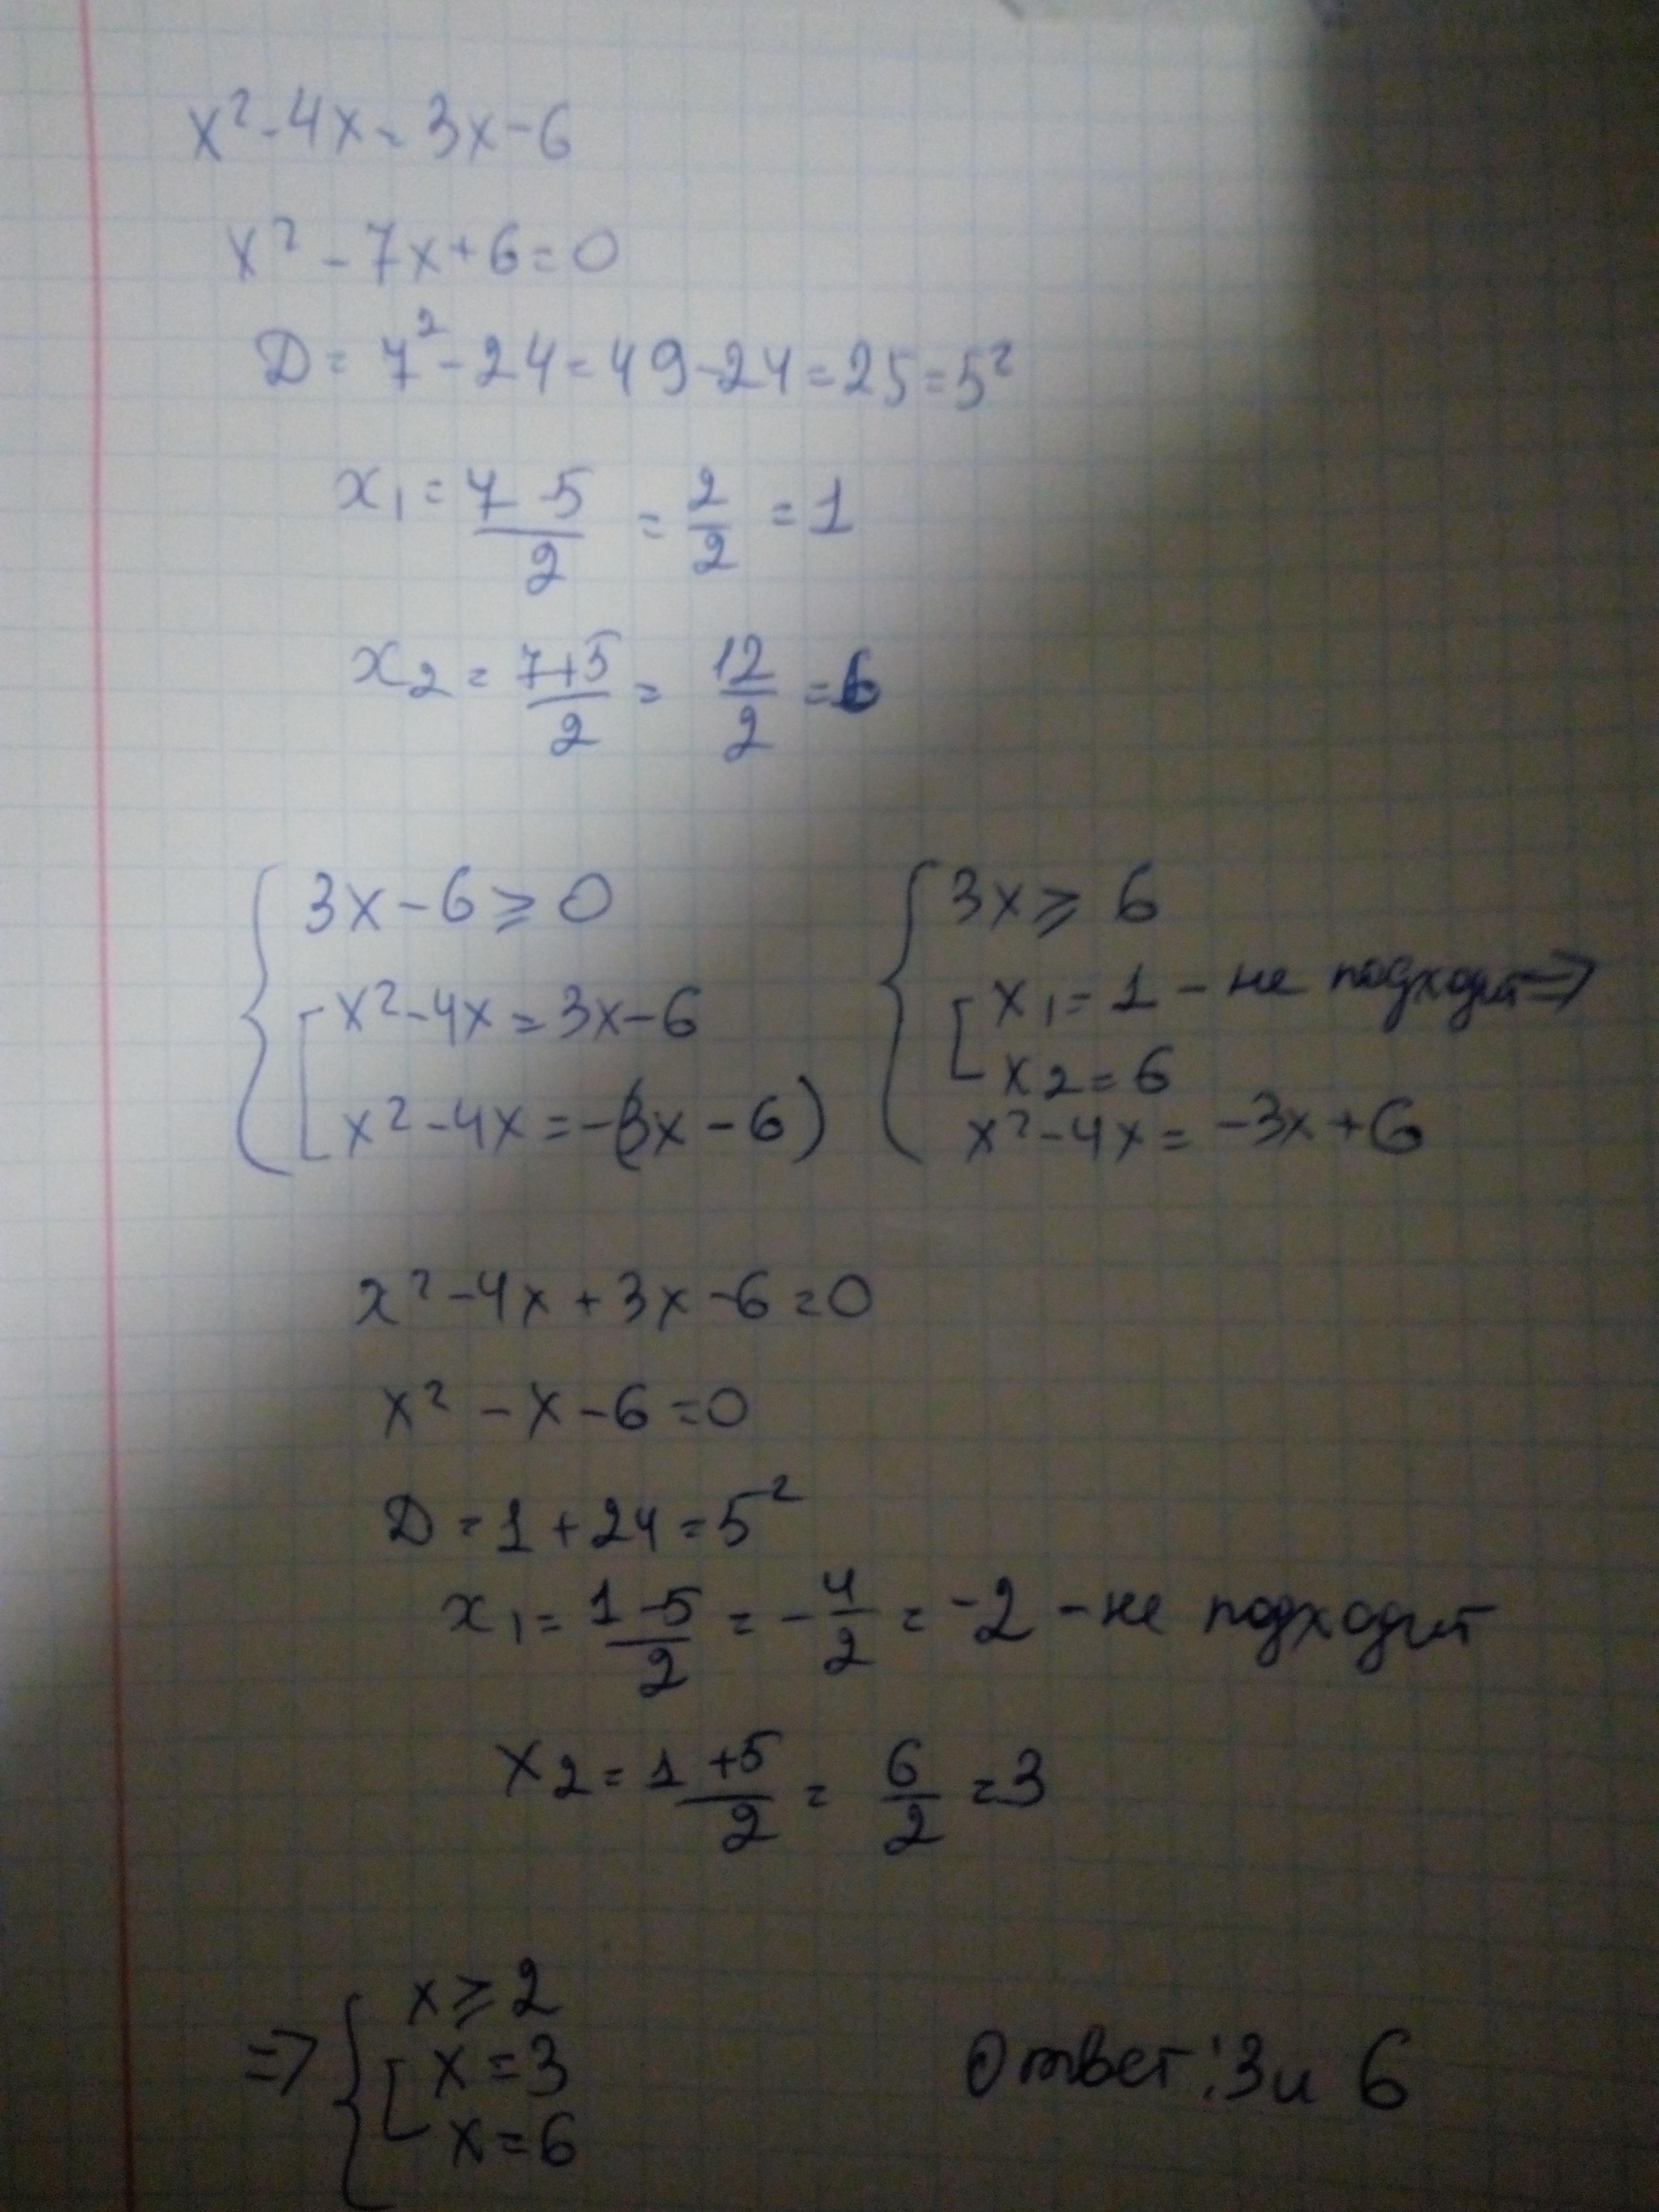 x² - 4x = 3x - 6
x² - 7x + 6 = 0
D = 7² - 24 = 49 - 24 = 25 = 5²
x₁ = (7 - 5)/2 = 2/2 = 1
x₂ = (7 + 5)/2 = 12/2 = 6
{ 3x - 6 ≥ 0
[ x² - 4x = 3x - 6
x² - 4x = -(3x - 6)
{ 3x ≥ 6
[ x₁ = 1 - не подходит ⇒
x₂ = 6
x² - 4x = -3x + 6
x² - 4x + 3x - 6 = 0
x² - x - 6 = 0
D = 1 + 24 = 5²
x₁ = (1 - 5)/2 = -4/2 = -2 - не подходит
x₂ = (1 + 5)/2 = 6/2 = 3
⇒ { x ≥ 2
[ x = 3
x = 6
Ответ: 3 и 6